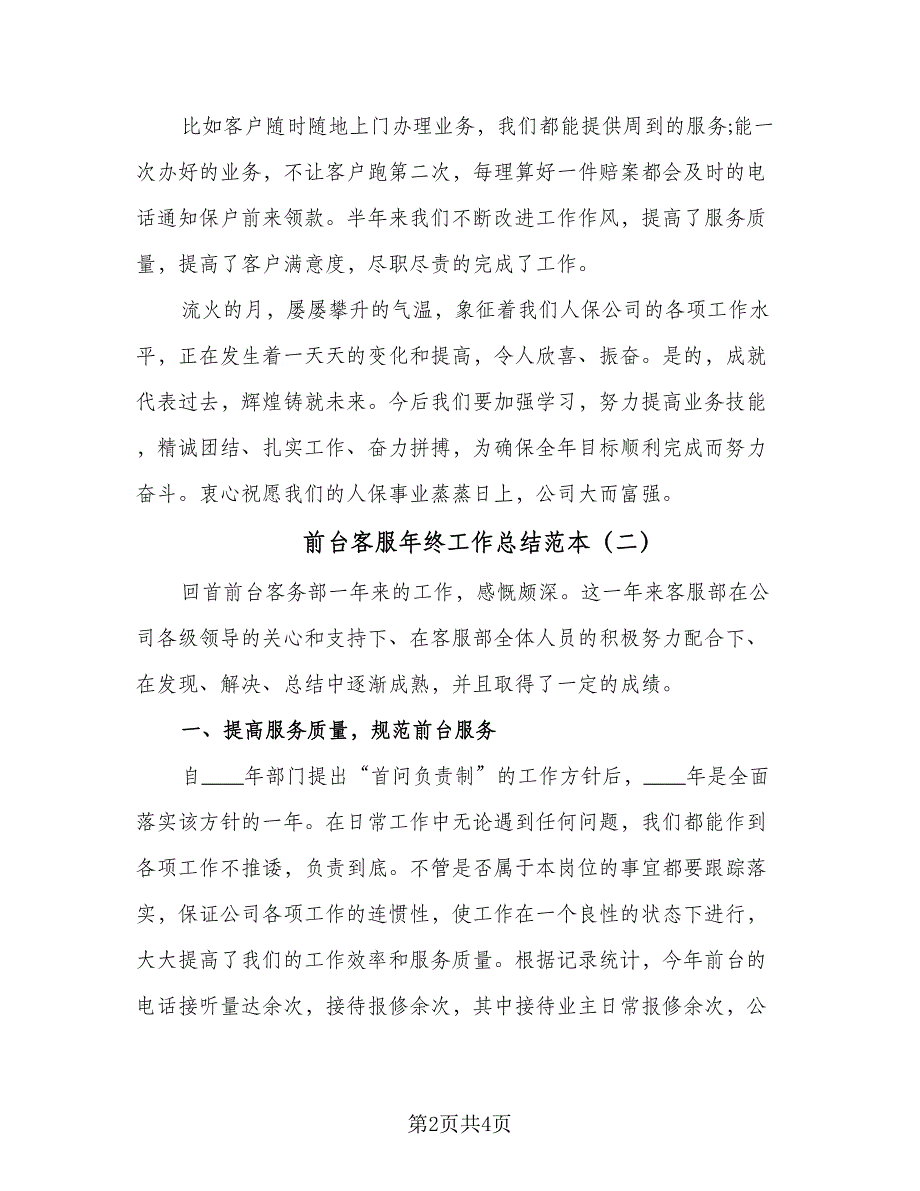 比如客户随时随地上门办理业务，我们都能提供周到的服务;能一
次办好的业务，不让客户跑第二次，每理算好一件赔案都会及时的电
话通知保户前来领款。半年来我们不断改进工作作风，提高了服务质
量，提高了客户满意度，尽职尽责的完成了工作。
流火的月，屡屡攀升的气温，象征着我们人保公司的各项工作水
平，正在发生着一天天的变化和提高，令人欣喜、振奋。是的，成就
代表过去，辉煌铸就未来。今后我们要加强学习，努力提高业务技能
，精诚团结、扎实工作、奋力拼搏，为确保全年目标顺利完成而努力
奋斗。衷心祝愿我们的人保事业蒸蒸日上，公司大而富强。
前台客服年终工作总结范本（二）
回首前台客务部一年来的工作，感慨颇深。这一年来客服部在公
司各级领导的关心和支持下、在客服部全体人员的积极努力配合下、
在发现、解决、总结中逐渐成熟，并且取得了一定的成绩。
一、提高服务质量，规范前台服务
自____年部门提出“首问负责制”的工作方针后，____年是全面
落实该方针的一年。在日常工作中无论遇到任何问题，我们都能作到
各项工作不推诿，负责到底。不管是否属于本岗位的事宜都要跟踪落
实，保证公司各项工作的连惯性，使工作在一个良性的状态下进行，
大大提高了我们的工作效率和服务质量。根据记录统计，今年前台的
电话接听量达余次，接待报修余次，其中接待业主日常报修余次，公
第2页共4页